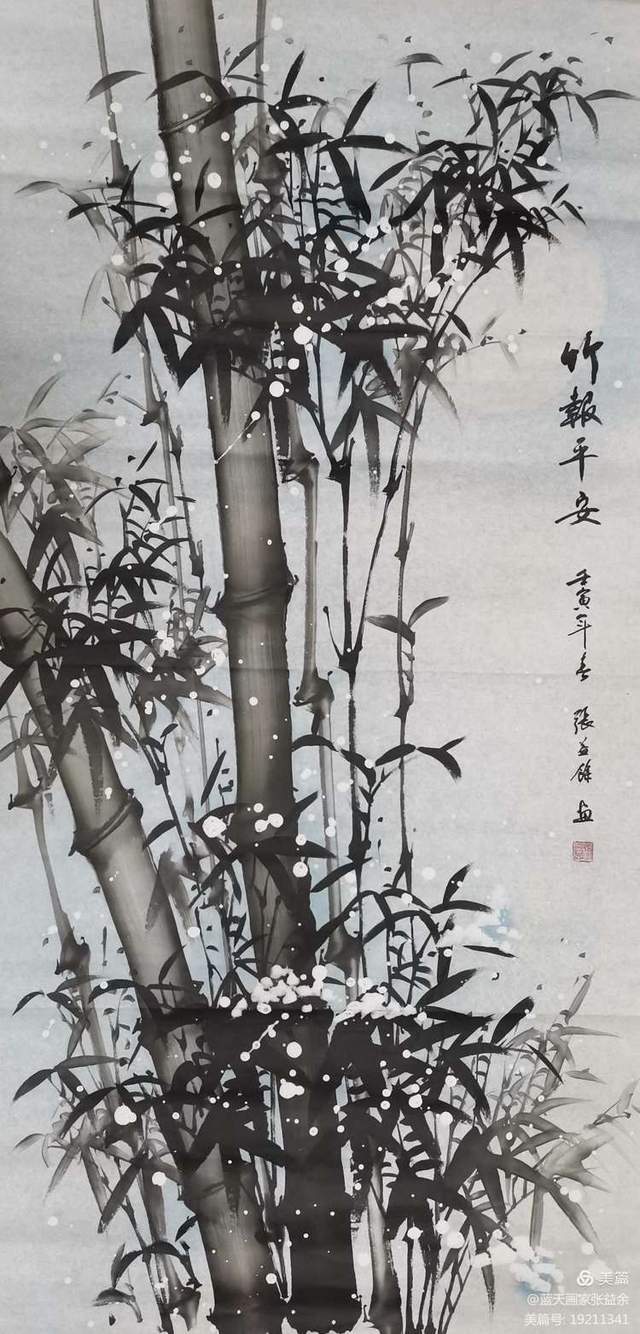 竹報平安
壬寅年春 張益餘 畫
美篇
@蓝天画家张益余
美篇号: 19211341